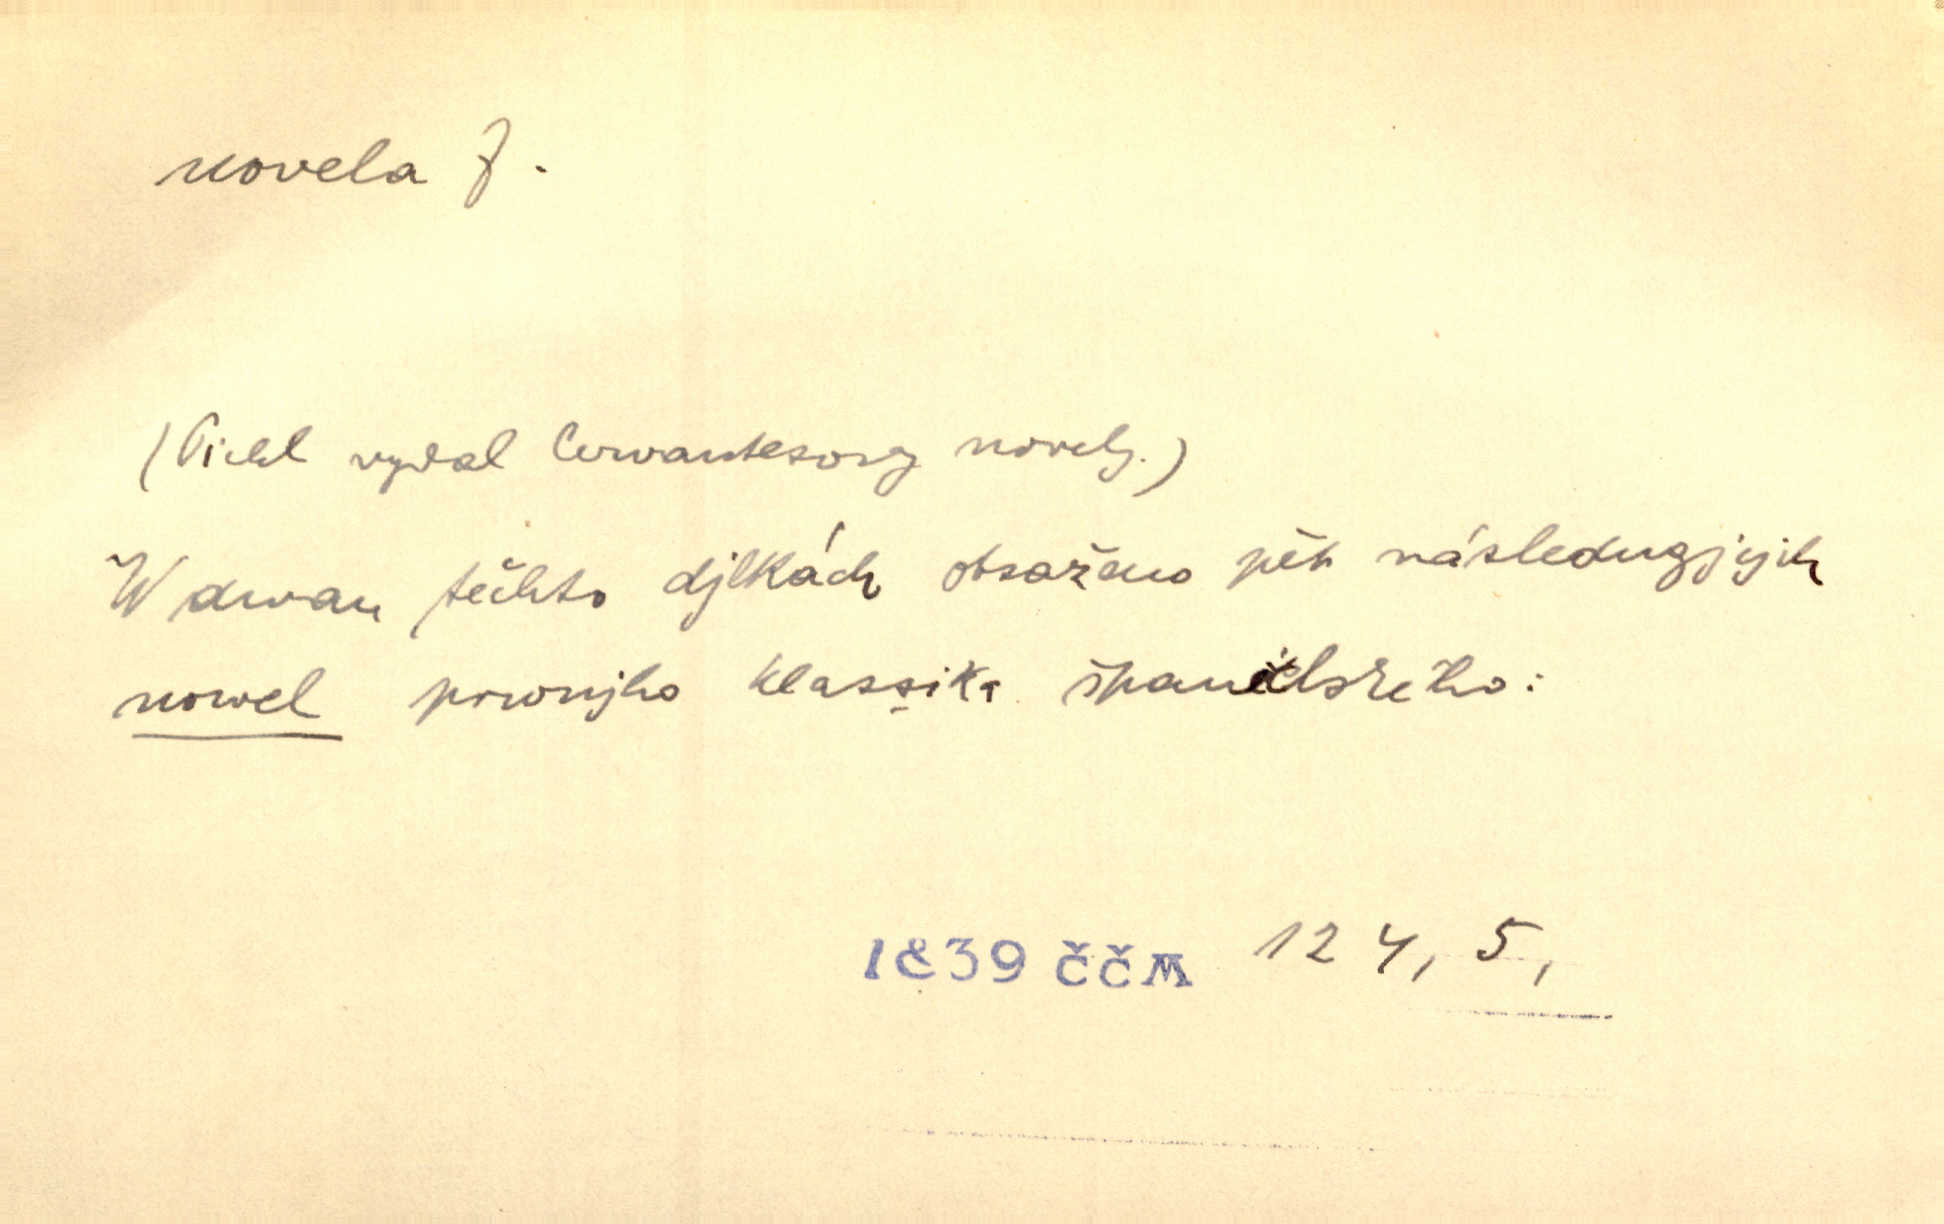 novela f.
(Pichl vydal Cervantesovy novely.)
W dwau těchto djlkách obsaženo pět následugjcjch
nowel prwnjho klassika španělského:
1839 ČČM 124, 5,